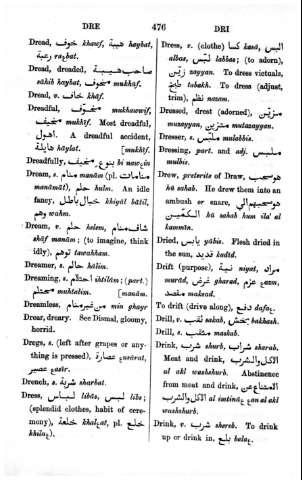 DRE 476 DRI
Dread, خوف khawf, هيبة haybat,
رعبة raɛbat.
Dread, dreaded, صاحب هيبة
sāhib haybat, مخوف mukhaf.
Dread, v. خاف khāf.
Dreadful, مخوف mukhawwif,
مخيف mukhīf. Most dreadful,
اهول. A dreadful accident,
هايلة hāylat. [mukhīf.
Dreadfully, بنوع مخيف bi nawɛin
Dream, s. منام manām (pl. منامات
manāmāt), حلم helm. An idle
fancy, خيال باطل khiyāl bātil,
وهم wahm.
Dream, v. حلم helem, شاف منام
shāf manām; (to imagine, think
idly), توهم tawahham.
Dreamer, s. حالم hālim.
Dreaming, s. احتلام ihtilām; (part.)
محتلم muhtalim. [manām.
Dreamless, من غير منام min ghayr
Drear, dreary. See Dismal, gloomy,
horrid.
Dregs, s. (left after grapes or any-
thing is pressed), عصارة ɛusārat,
عصير ɛasīr.
Drench, s. شربة sharbat.
Dress, لباس libās, لبس libs;
(splendid clothes, habit of cere-
mony), خلعة khalɛat, pl. خلع
khilaɛ).
Dress, s. (clothe) كسا kasā, البس
albas, لبس labbas; (to adorn),
زين zayyan. To dress victuals,
طبخ tabakh. To dress (adjust,
trim), نظم nazam.
Dressed, drest (adorned), مزين
muzayyan, متزين mutazayyan.
Dresser, s. ملبس mulabbis.
Dressing, part. and adj. ملبس
mulbis.
Drew, preterite of Draw, هو سحب
hū sahab. He drew them into an
ambush or snare, هو سحبهم الي
الكمين hū sahab hum ila' al
kammīn.
Dried, يابس yābis. Flesh dried in
the sun, قديد kadīd.
Drift (purpose), نية niyat, مراد
murād, غرض gharad, عزم ɛazm,
مقصد maksad.
To drift (drive along), دفع dafaɛ.
Drill, v. ثقب sakab, بخش bakhash.
Drill, s. مثقب maskab.
Drink, شرب shurb, شراب sharāb.
Meat and drink, الاكل والشرب
al akl washshurb. Abstinence
from meat and drink, الامتناع عن
الاكل والشرب al imtināɛ ɛan al akl
washshurb.
Drink, v. شرب shereb. To drink
up or drink in, بلع balaɛ.